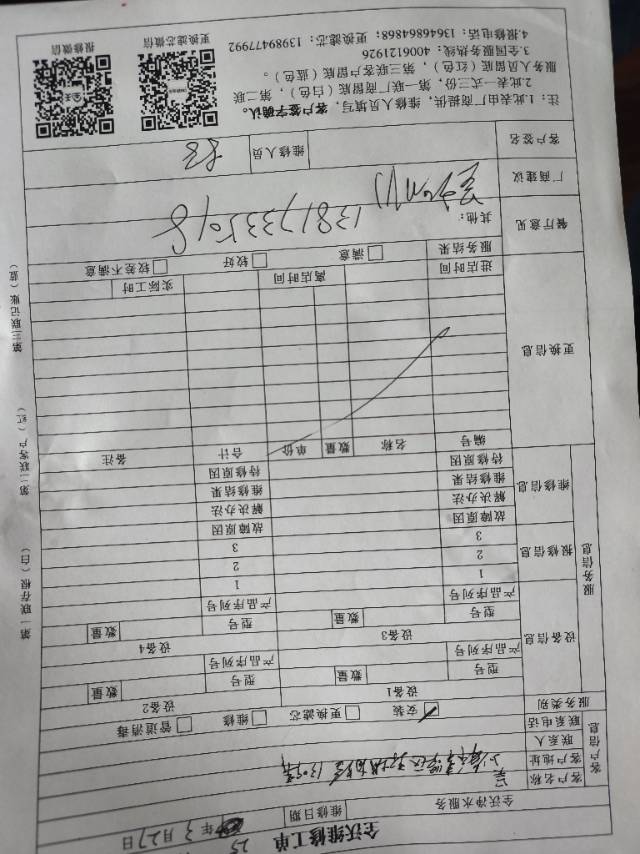 全沃维修工单
全沃净水服务 维修日期 25年3月27日
客户信息
客户名称
客户地址
联系人
联系电话
服务类别 安装 更换滤芯 维修 管道消毒
服务信息
设备信息
设备1 设备2
型号 数量 型号 数量
产品序列号 产品序列号
设备3 设备4
型号 数量 型号 数量
产品序列号 产品序列号
报修信息
1 1
2 2
3 3
维修信息
故障原因 故障原因
解决办法 解决办法
维修结果 维修结果
待修原因 待修原因
更换信息
编号 名称 数量 单价 合计 备注
进店时间 离店时间 实际工时
餐厅意见
服务结果 满意 较好 较差不满意
其他:
厂商建议
客户签名 维修人员
注:1.此表由厂商提供,维修人员填写,客户签字确认。
2.此表一式三份,第一联厂商留底(白色),第二联
服务人员留底(红色),第三联客户留底(蓝色)。
3.全国服务热线:4006121926
4.报修电话:1364864868;更换滤芯:13989477992
更换滤芯微信 报修微信
第一联存根(白) 第二联客户(红) 第三联记账(蓝)